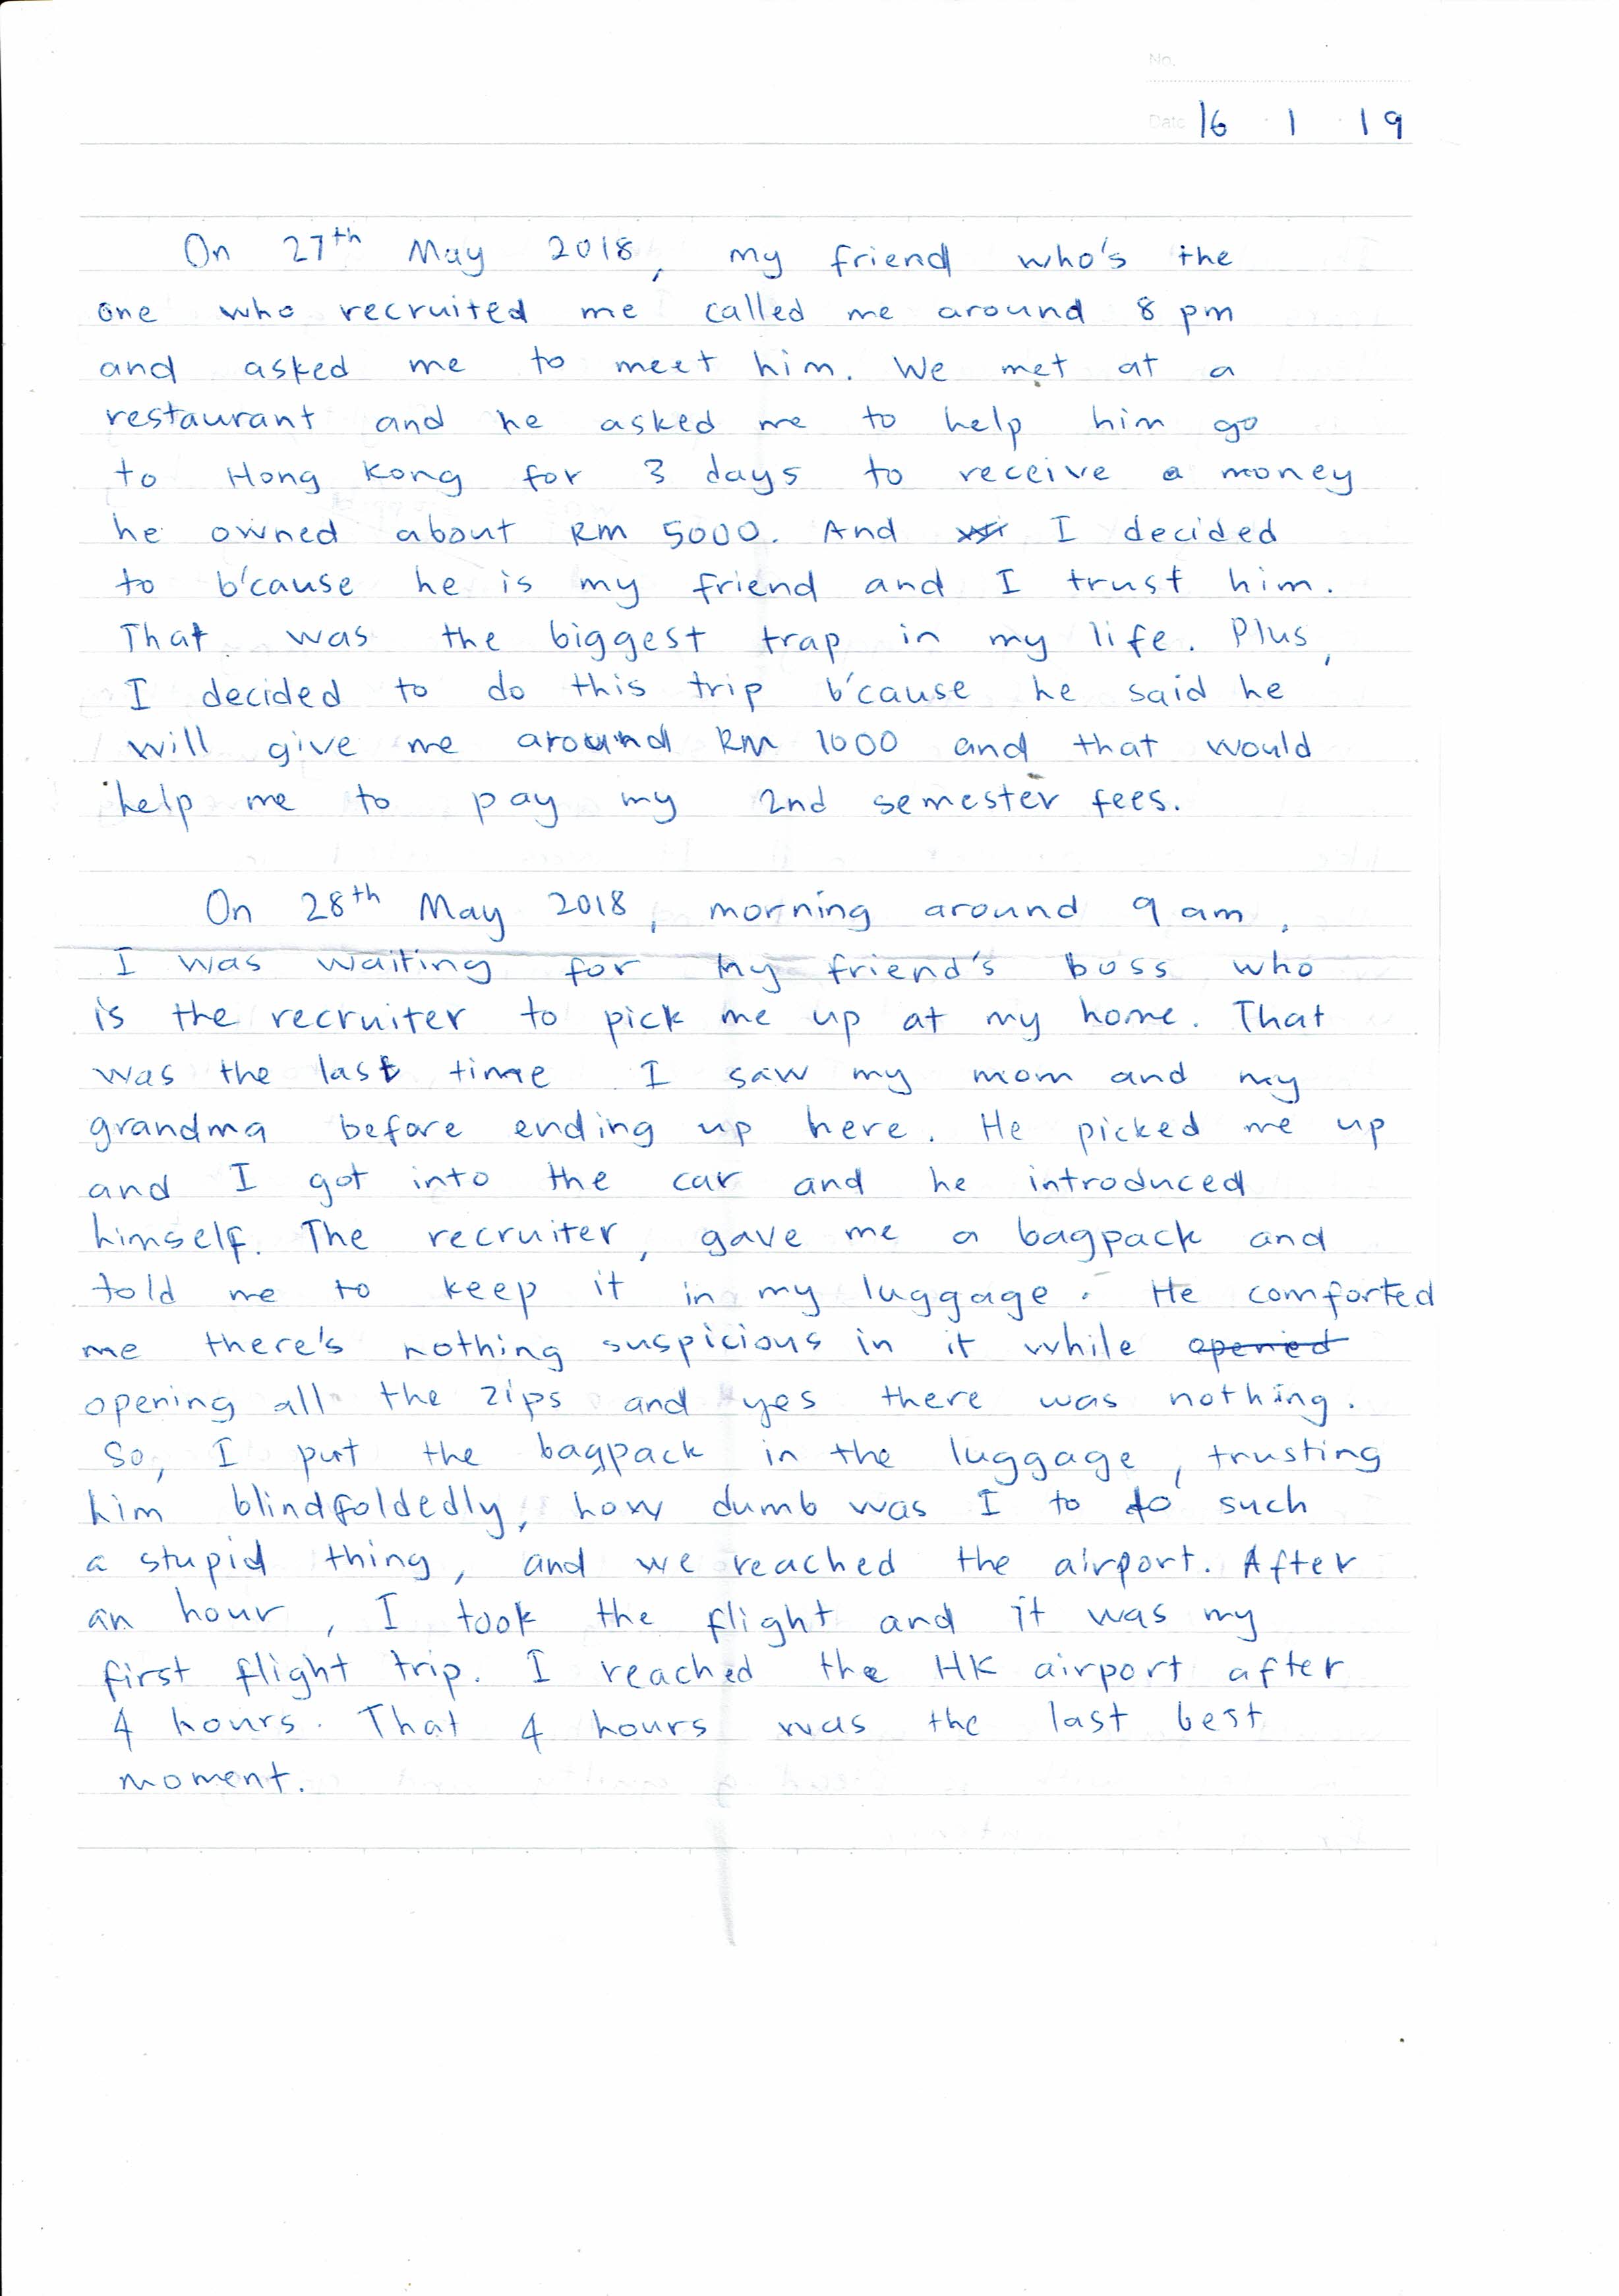 No.
Date 16 · 1 · 19
On 27th May 2018, my friend who's the
one who recruited me called me around 8 pm
and asked me to meet him. We met at a
restaurant and he asked me to help him go
to Hong Kong for 3 days to receive a money
he owned about RM 5000. And I decided
to b'cause he is my friend and I trust him.
That was the biggest trap in my life. Plus,
I decided to do this trip b'cause he said he
will give me around RM 1000 and that would
help me to pay my 2nd semester fees.
On 28th May 2018, morning around 9 am,
I was waiting for my friend's boss who
is the recruiter to pick me up at my home. That
was the last time I saw my mom and my
grandma before ending up here. He picked me up
and I got into the car and he introduced
himself. The recruiter, gave me a bagpack and
told me to keep it in my luggage. He comforted
me there's nothing suspicious in it while opened
opening all the zips and yes there was nothing.
So, I put the bagpack in the luggage, trusting
him blindfoldedly, how dumb was I to do such
a stupid thing, and we reached the airport. After
an hour, I took the flight and it was my
first flight trip. I reached the HK airport after
4 hours. That 4 hours was the last best
moment.